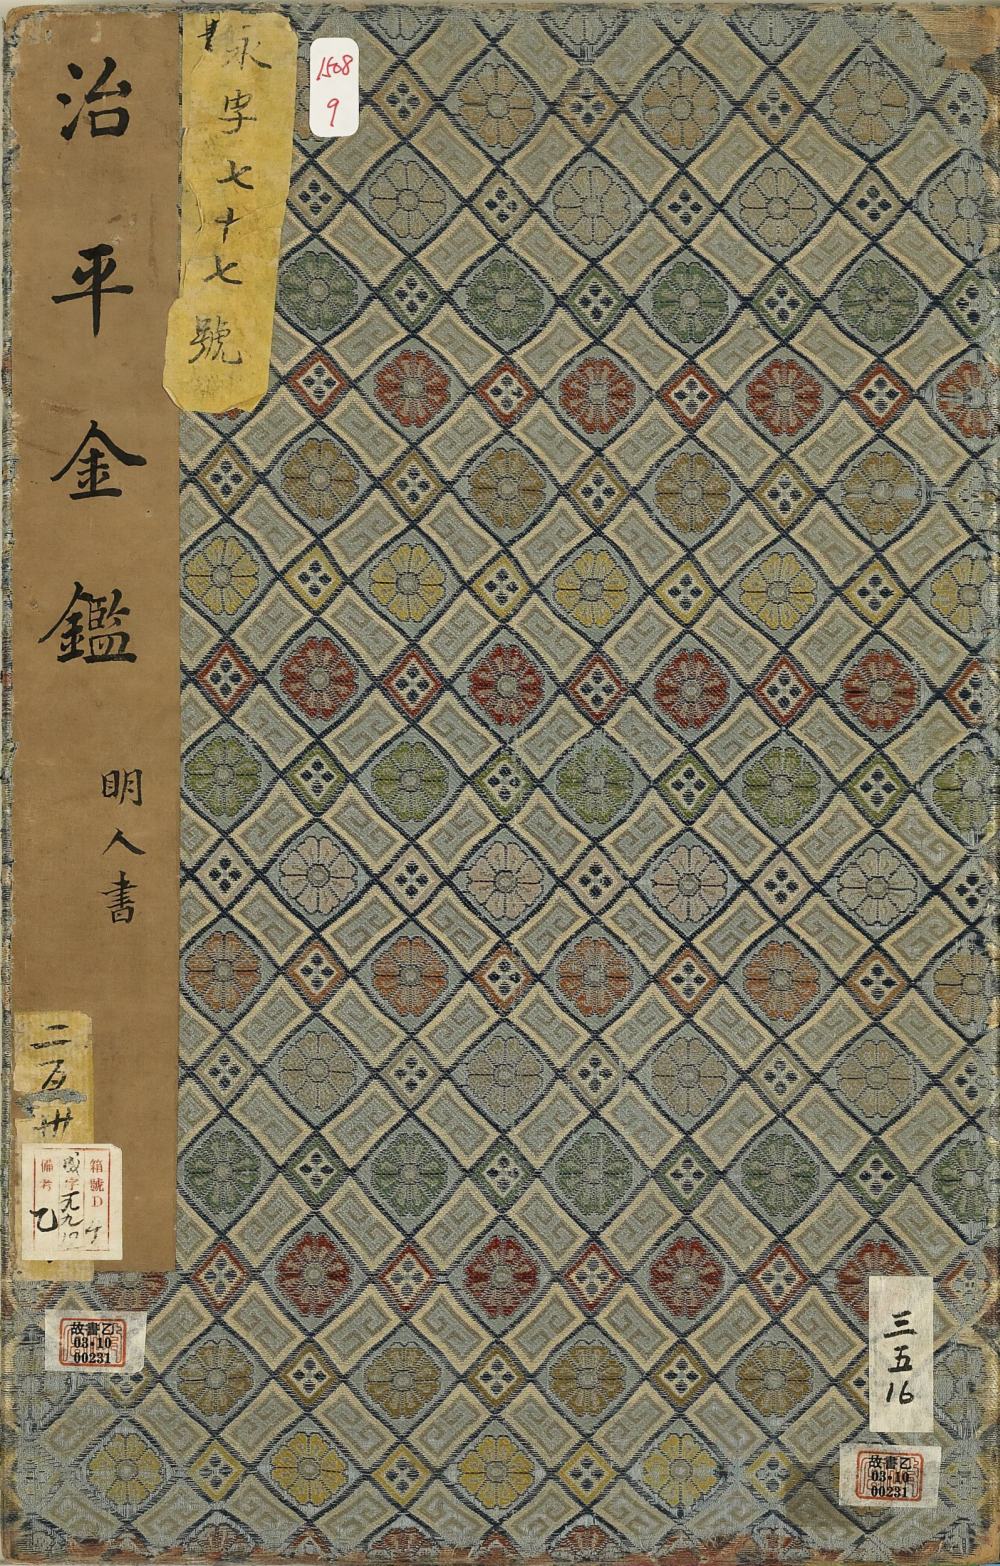 治平金鑑
明人書
永字七十七號
1508
9
箱號D
備考
乙
故畫乙
03•10
00231
三五16
故畫乙
03•10
00231